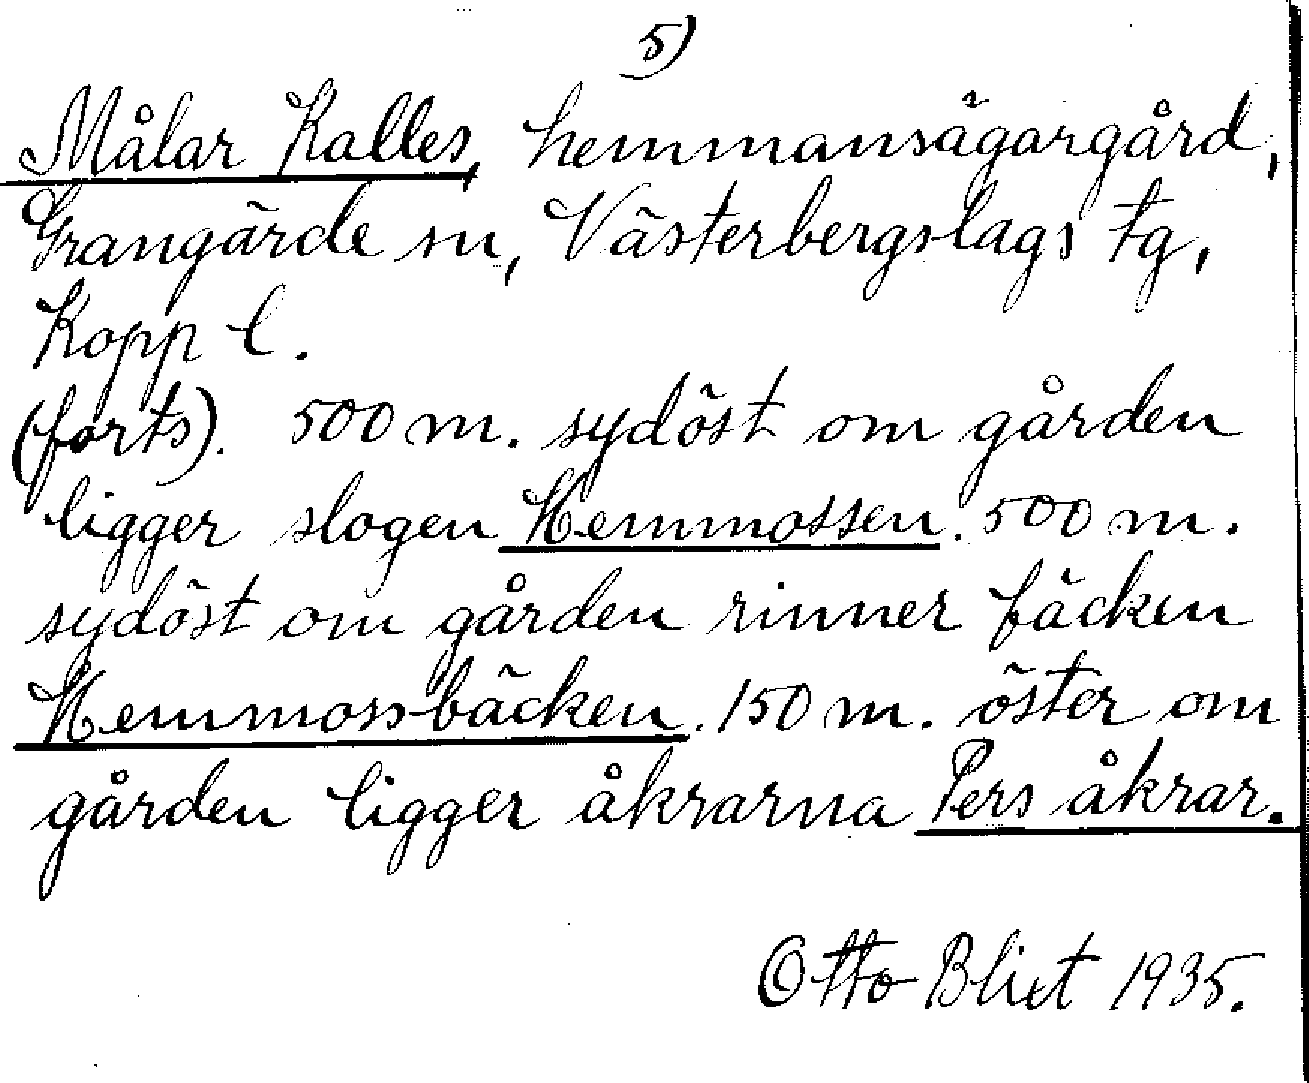 5)
Målar Kalles, hemmansägargård,
Grangärde sn, Västerbergslags fg,
Kopp l.
(forts). 500 m. sydöst om gården
ligger slogen Hemmossen. 500 m.
sydöst om gården rinner bäcken
Hemmoss-bäcken. 150 m. öster om
gården ligger åkrarna Pers åkrar.
Otto Blixt 1935.